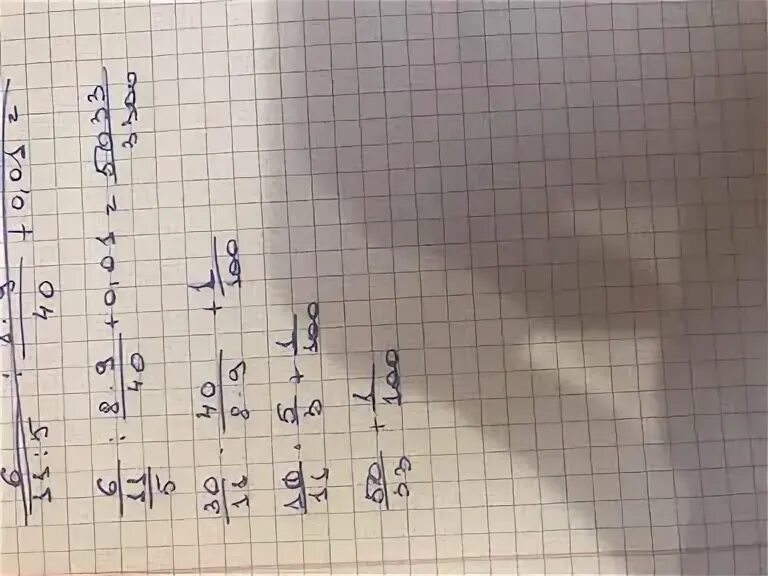 6 / 11:5 : 8·9 / 40 + 0,01 =
6 / 11/5 : 8·9 / 40 + 0,01 = 5033 / 3300
30 / 11 · 40 / 8·9 + 1 / 100
10 / 11 · 5 / 3 + 1 / 100
50 / 33 + 1 / 100